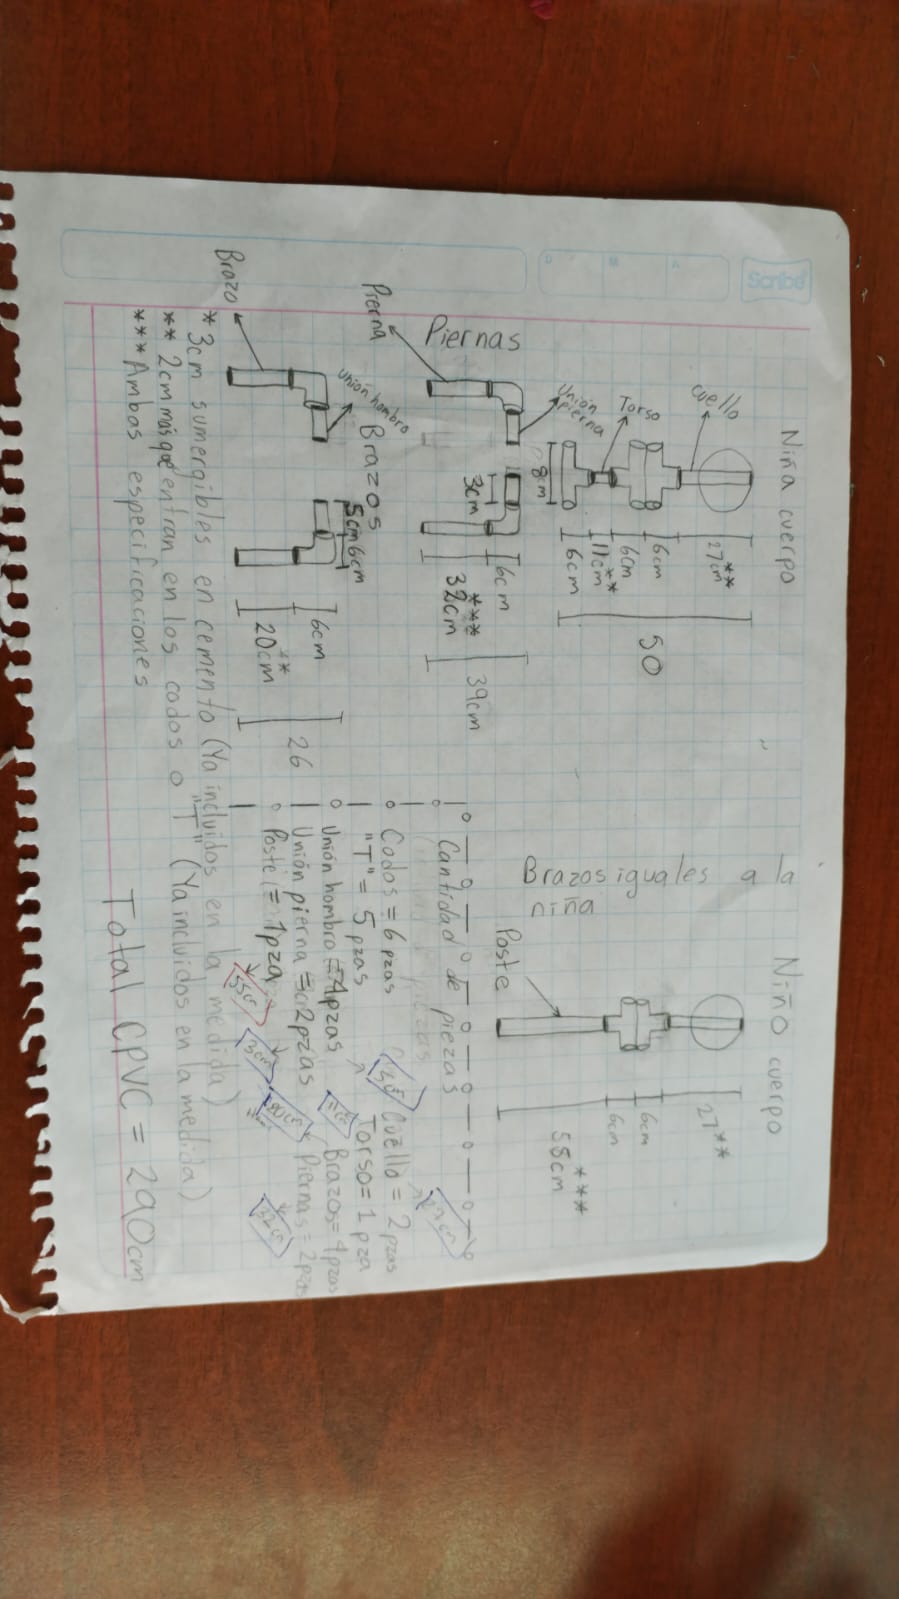 Scribe
Niña cuerpo
Cuello
27cm**
6cm
Torso
6cm
11cm**
Unión pierna
6cm
50
8cm
Piernas
6cm
3cm
***
32cm
39cm
Pierna
Unión hombro
Brazos
5cm 6cm
6cm
20cm**
26
Brazo
Brazos iguales a la
niña
Niño cuerpo
27**
6cm
6cm
55cm***
Poste
Cantidad de piezas
Codos = 6 pzas
"T" = 5 pzas
Unión hombro = 4pzas
5cm
Unión pierna = 2pzas
3cm
Poste = 1pza
55cm
Cuello = 2 pzas
27cm
Torso = 1 pza
11cm
Brazos = 4pzas
20cm
Piernas = 2pzas
32cm
* 3cm sumergibles en cemento (Ya incluidos en la medida)
** 2cm más que entran en los codos o "T" (Ya incluidos en la medida)
*** Ambas especificaciones
Total CPVC = 290cm